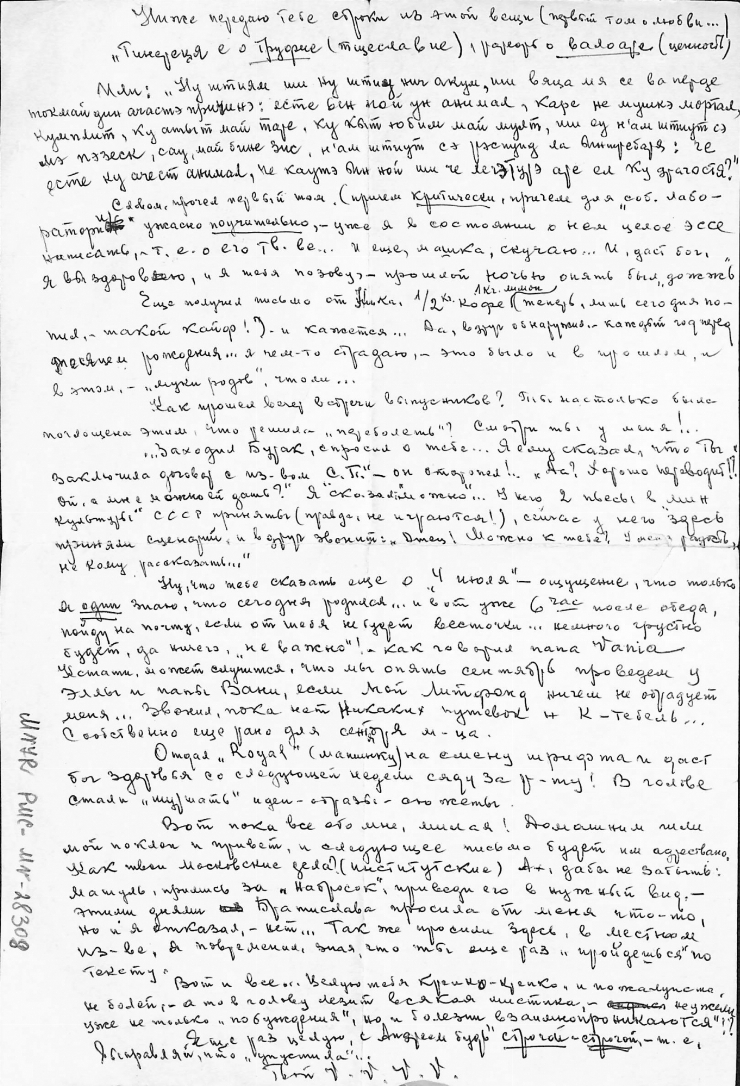 Ниже передаю тебе строки из этой вещи (первый том о любви...)
"Тинереця е о трудие (тщеславие), о валоаре (ценность)
Или: "Ну штиям ши ну штиу нич акум, ши вяца мя се ва перде
токмай дин ачастэ причинэ: есте ын ной ун анимал, каре не мушкэ мортал,
кумплит, ку атыт май таре, ку кыт юбим май мулт, ши еу н'ам штиут сэ
мэ пэзеск, сау, май бине зис, н'ам штиут сэ рэспунд ла ынтребаря: че
есте ку ачест анимал, че каутэ ын ной ши че легэтурэ аре ел ку драгостя?"
Словом, прочел первый том. (причем критически, причем для "соб. лабо-
ратории" ужасно поучительно, - уже я в состоянии о нем целое эссе
написать, - т. е. о его тв-ве... И еще, машка, скучаю... И, даст бог,
я выздоровею, и я тебя позову, - прошлой ночью опять был "дождь"
Еще получил письмо от Ника, 1/2 кг. кофе (1 кг. лимон) (теперь, лишь сегодня по-
пил, - такой кайф!) - и кажется... Да, вдруг обнаружив - каждый год перед
месяцем рождения... я чем-то страдаю, - это было и в прошлом, и
в этом, - "муки родов", что ли...
Как прошел вечер встречи выпускников? Ты настолько была
поглощена этим, что решила "переболеть"? Смотри ты у меня!..
Заходил Бурак, спросил о тебе... Я ему сказал, что ты
заключила договор с из-вом С.П." - он оторопел!.. "Да? Хорошо переводит!?
Ой, а мне можно ей дать?" Я "сказал" можно"... У него 2 пьесы в мин
культуры СССР приняты (правда, не играются!), сейчас у него здесь
приняли сценарий, и вдруг звонит: "Отец! Можно к тебе? У меня радость,
не кому рассказать..."
Ну, что тебе сказать еще о "4 июля" - ощущение, что только
я один знаю, что сегодня родился... и вот уже 6 час после обеда,
пойду на почту, если от тебя не будет весточки... немного грустно
будет, да ничего, "не важно"! - как говорил папа Vania
Кстати, может случится, что мы опять сентябрь проведем у
Эллы и папы Вани, если мой Литфонд ничем не обрадует
меня... Звонил, пока нет никаких путевок в К-тебель...
Собственно еще рано для сентября м-ца.
Отдал "Royal" (машинку) на смену шрифта и даст
бог здоровья со следующей недели сяду за р-ту! В голове
стали "шуршать" идеи-образы-сюжеты.
Вот пока все обо мне, милая! Домашним шли
мой поклон и привет, и следующее письмо будет им адресовано,
Как твои московские дела? (институтские) Ах, дабы не забыть:
Матуль, прошлись за "Набросок", приведи его в нужный вид, -
этими днями Братислава просила от меня что-то,
но и я отказал, - нет... Так же просили здесь, в местном
из-ве, я повременил, зная, что ты еще раз "пройдешься" по
тексту.
Вот и все... Целую тебя крепко-крепко, и пожалуйста
не болей, - а то в голову лезит всякая мистика, - неужели
уже не только "побуждения", но и болезни взаимопроникаются"!?
Еще раз целую, с Андреем будь строгой-строгой, - т. е.
Исправляй, что "упустила"...
Твой V. V. V. V.
МЛЖК РМС-MN-28309